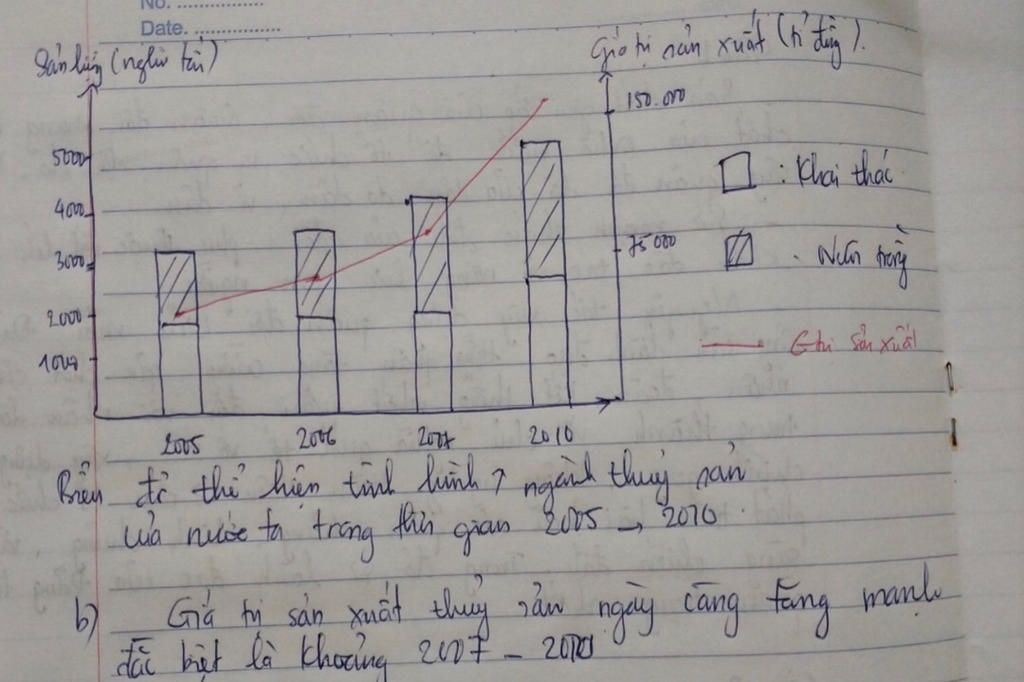 No. ..................
Date. ..................
Sản lượng (nghìn tấn)
Giá trị sản xuất (tỉ đồng).
150.000
5000
4000
3000
2000
1000
75000
: Khai thác
. Nuôi trồng
Gtrị sản xuất
2005 2006 2007 2010
Biểu đồ thể hiện tình hình ngành thuỷ sản
của nước ta trong thời gian 2005 → 2010
b) Giá trị sản xuất thuỷ sản ngày càng tăng mạnh
đặc biệt là khoảng 2007 - 2010